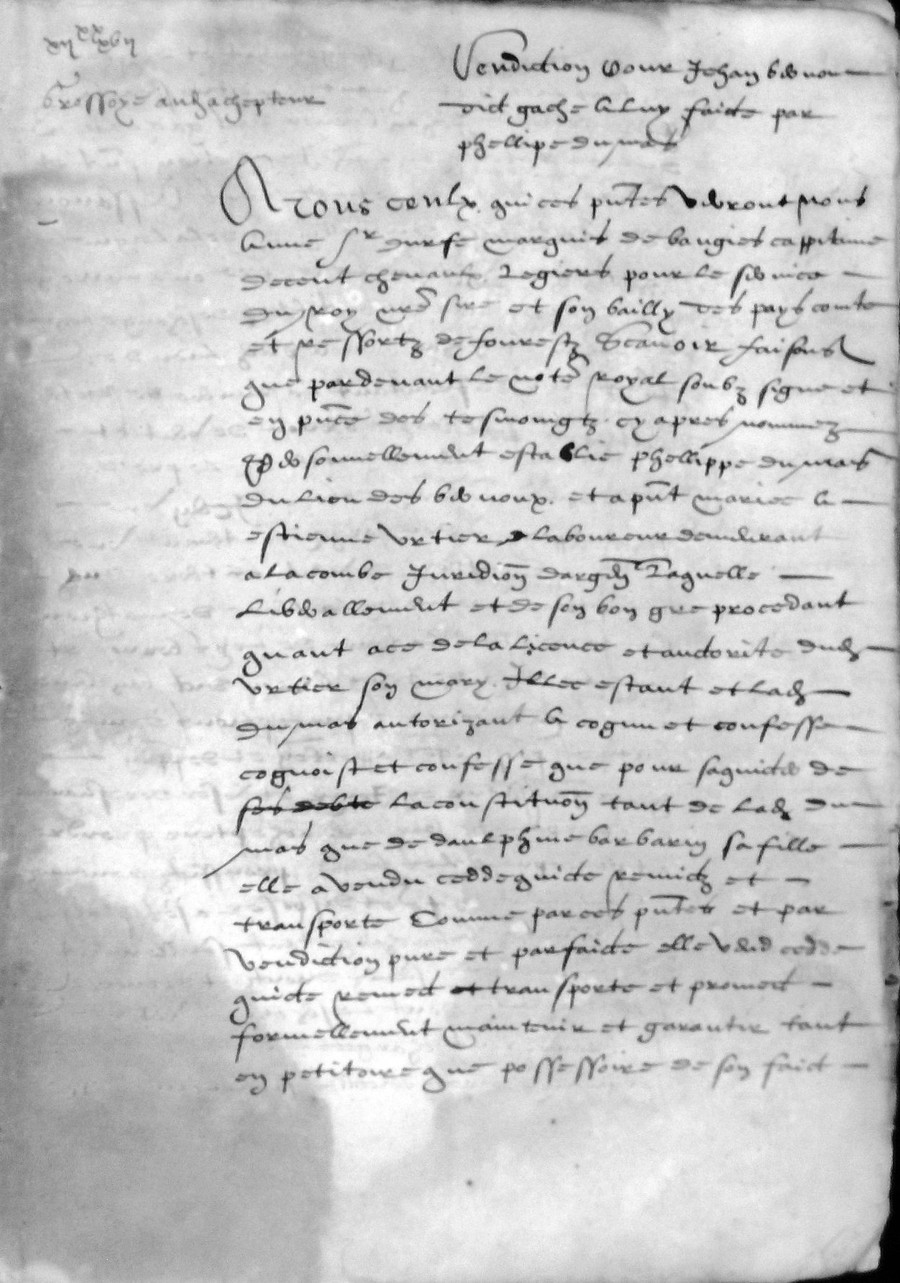 Grossoye audit achepteur
Vendiction pour Jehan bervou
dict gache a luy faicte par
phellipe dumas
A tous ceulx qui ces pntes verront nous
Anne Sr durfe marquis de baugies cappitaine
de cent chevaulx legiers pour le service
du roy nre sire et son bailly des pays conte
et ressortz de fourestz Scavoir faisons
que pardevant le notre royal soubz signe et
en pnce des tesmoingtz cy apres nommez
Personnellement establie phellippe dumas
du lieu des bervoux et a pnt mariee a
estienne vrtier laboureur demeurant
a la combe Juridion dargen Laquelle
Liberallement et de son bon gre procedant
quant a ce de la licence et auctorite dud
vrtier son mary Illec estant et lad
dumas autorizant a cogneu et confesse
cognoist et confesse que pour saquicter de
ses debte la constitution tant de lad du
mas que de daulphine barbarin sa fille
elle a vendu cedde quicte remictz et
transporte Comme par ces pntes et par
vendiction pure et parfaicte elle vend cedde
quicte remect et transporte et promect
formellement maintenir et garantir tant
en petitoire que possessoire de son faict